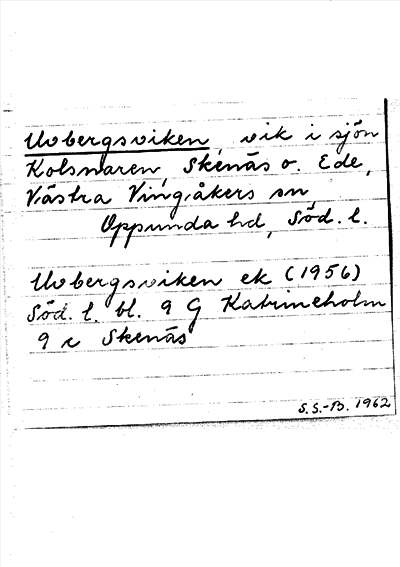 Uvbergsviken, vik i sjön
Kolsnaren, Skenäs o. Ede,
Västra Vingåkers sn,
Oppunda hd, Söd. l.
Uvbergsviken ek (1956)
Söd. l. bl. 9 G Katrineholm
9 c Skenäs
S.S.-B. 1962